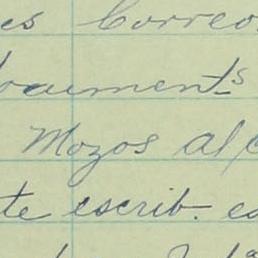 es Correo
ocuments
Mozos al c
te escrib. es